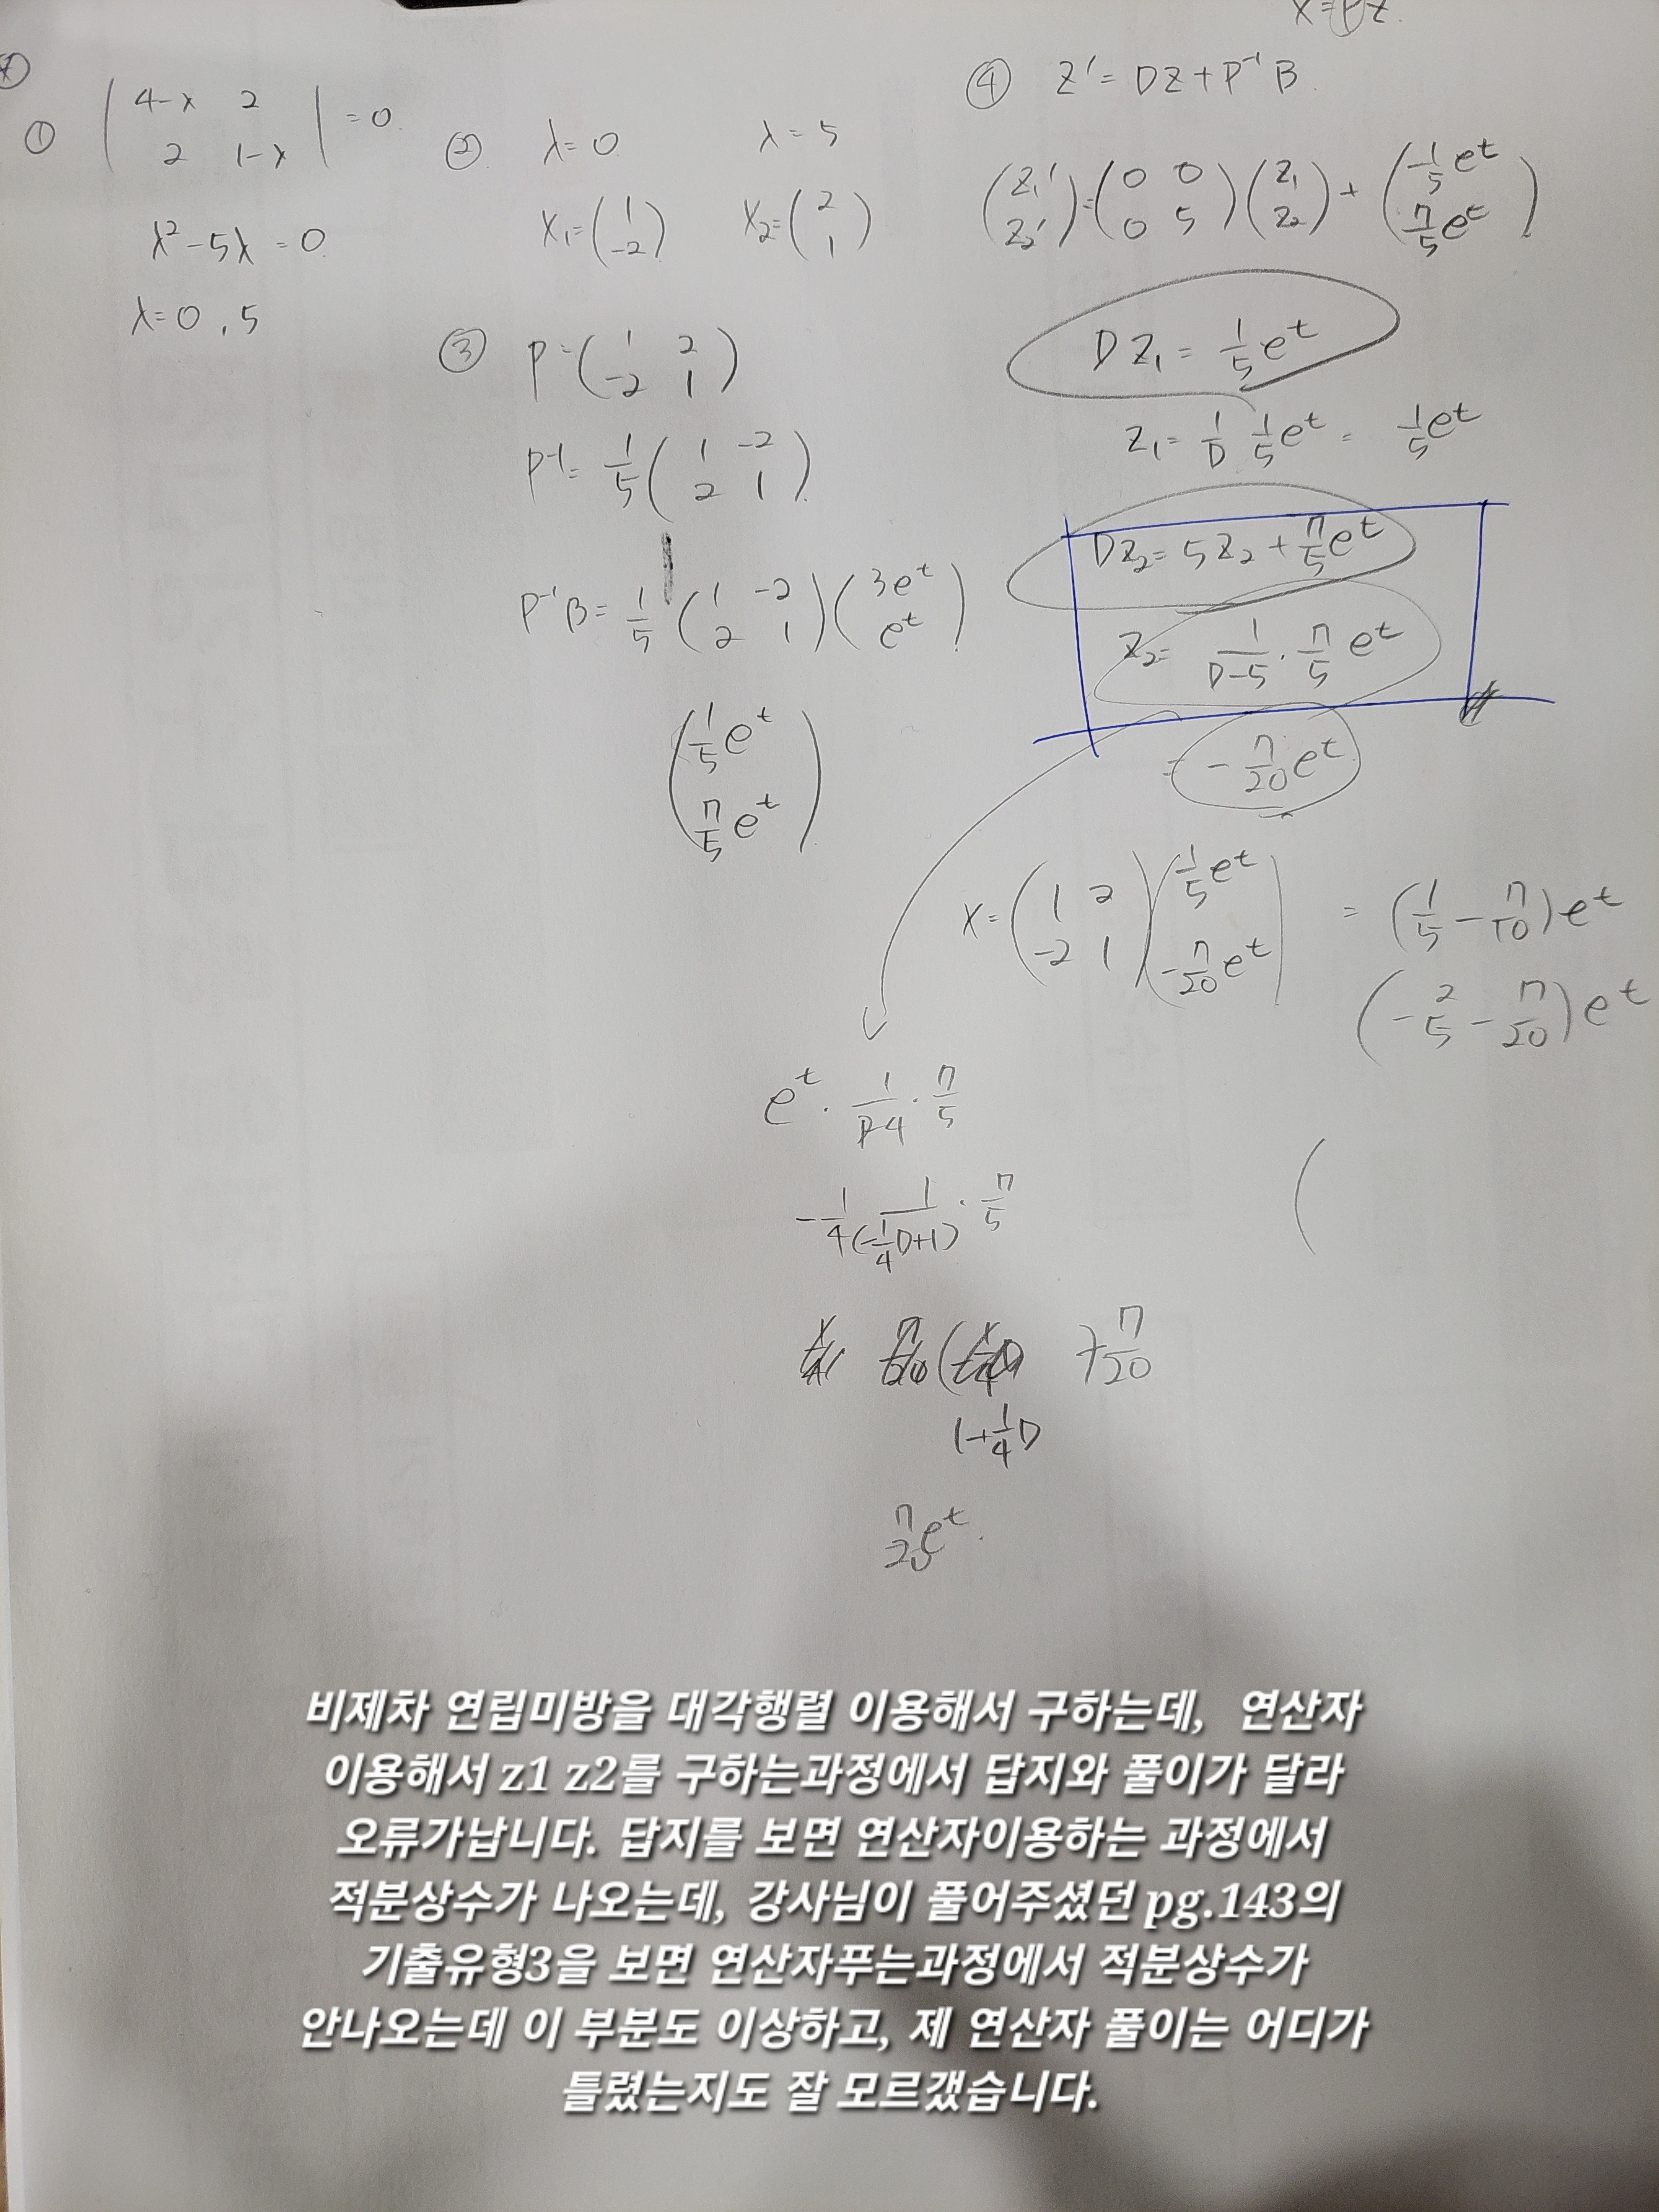 X=PZ
①
| 4-λ 2 |
| 2 1-λ | =0
λ²-5λ=0
λ=0, 5
② λ=0 λ=5
X₁=(1 -2) X₂=(2 1)
③ P=(1 2
-2 1)
P⁻¹= 1/5 (1 -2
2 1)
P⁻¹B= 1/5 (1 -2
2 1)(3e^t
e^t)
(1/5 e^t
7/5 e^t)
④ Z'=DZ+P⁻¹B
(Z₁' Z₂')=(0 0
0 5)(Z₁ Z₂)+(1/5 e^t
7/5 e^t)
DZ₁= 1/5 e^t
Z₁= 1/D 1/5 e^t = 1/5 e^t
DZ₂=5Z₂+7/5 e^t
Z₂= 1/(D-5) · 7/5 e^t
= -7/20 e^t
X=(1 2
-2 1)(1/5 e^t
-7/20 e^t) = (1/5 - 7/10)e^t
(-2/5 - 7/20)e^t
e^t · 1/(D-4) · 7/5
-1/4 1/(-1/4D+1) · 7/5
+7/20
1+1/4D
7/20 e^t
(
비제차 연립미방을 대각행렬 이용해서 구하는데, 연산자
이용해서 z1 z2를 구하는과정에서 답지와 풀이가 달라
오류가납니다. 답지를 보면 연산자이용하는 과정에서
적분상수가 나오는데, 강사님이 풀어주셨던 pg.143의
기출유형3을 보면 연산자푸는과정에서 적분상수가
안나오는데 이 부분도 이상하고, 제 연산자 풀이는 어디가
틀렸는지도 잘 모르갰습니다.